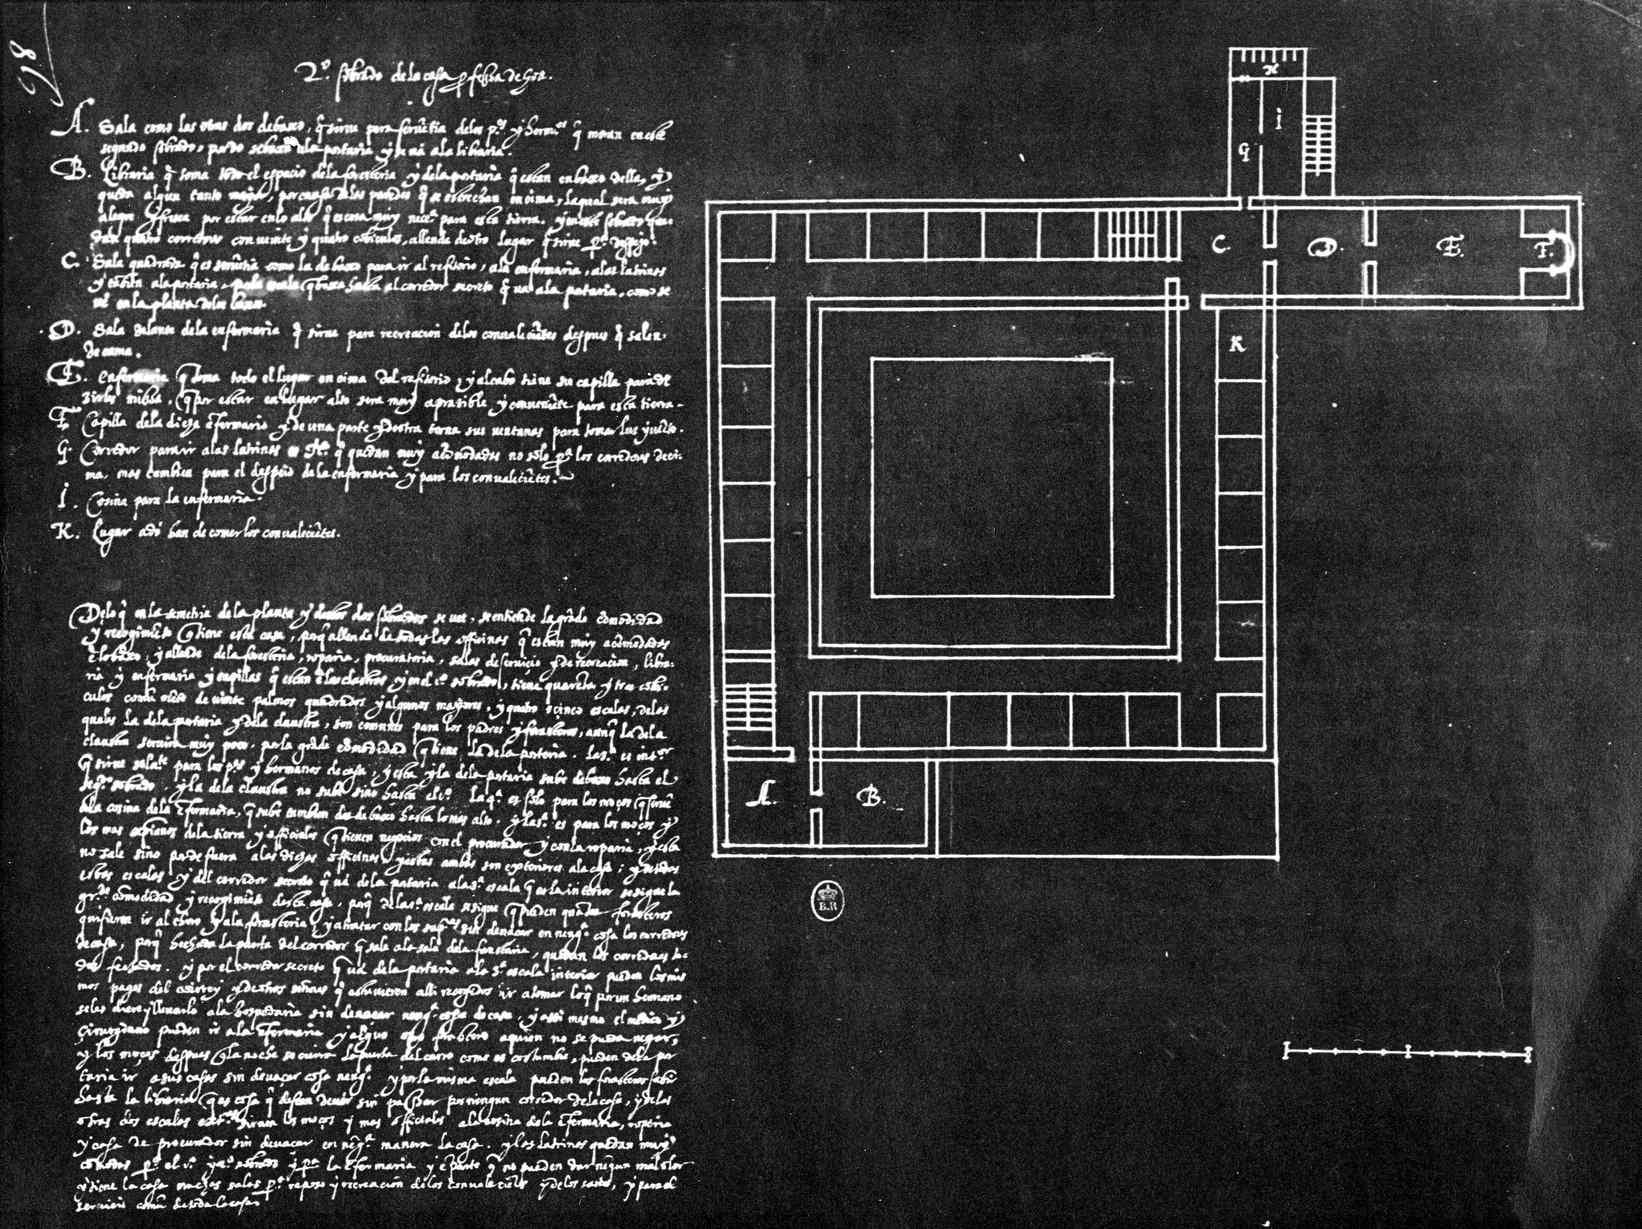 98
2º sobrado de la casa professa de Goa.
A. Sala como las otras dos debaxo, q̃ sirve para servẽtia delos p.es y herm.os q̃ moran en este
segundo sobrado, por do se baxa a la portaria y se va a la libraria.
B. Libraria q̃ toma todo el espacio dela foresteria y dela portaria q̃ estan enbaxo della, y
queda algun tanto mayor, por causa delas paredes q̃ se estrechan encima, laqual sera muy
alegre y fresca por estar en lo alto q̃ es cosa muy nec.ª para esta tierra. y en este sobrado que-
dan quatro corredores con veinte y quatro cubiculos, allende de otro lugar q̃ sirve p.ª despejo.
C. Sala quadrada q̃ es servẽtia como la debaxo para ir al refitorio, ala enfermaria, alas latrinas
y tãbiẽ ala portaria, por la escala q̃ baxa al corredor secreto q̃ va ala portaria, como se
vé en la planta
D. Sala delante dela enfermaria q̃ sirve para recreacion delos convaleciẽtes despues q̃ salen
de cama.
E. Enfermaria q̃ toma todo el lugar encima del refitorio, y al cabo tiene su capilla para de
zirles missa. q̃ por estar en lugar alto sera muy aprazible y conveniẽte para esta tierra.
F. Capilla dela dicha ẽfermaria y de una parte y de otra terna sus ventanas para tomar luz y viẽto.
G. Corredor para ir alas latrinas H. q̃ quedan muy acõmodadas no solo p.ª los corredores deci-
ma, mas tambien para el despejo de la enfermaria y para los convaleciẽtes.
I. Cosina para la enfermaria.
K. Lugar adõ han de comer los convaleciẽtes.
Delo q̃ en la de la planta y destos dos sobrados se vee, se entiende la grãde comodidad
y recogimiẽto q̃ tiene esta casa, porq̃ allende de todas las officinas q̃ estan muy acõmodadas
ẽ lo baxo, y allẽde dela foresteria, roparia, procuratoria, salas de servicio y de recreacion, libra-
ria y enfermaria y capillas q̃ estan y en el 1º sobrado, tiene quarẽta y tres cubi-
culos como de veinte palmos quadrados y algunos mayores, y quatro o cinco escalas, delas
quales la dela portaria y dela claustra, son comunes para los padres y forasteros, aunq̃ la dela
claustra servira muy poco, por la grãde comodidad q̃ tiene la dela porteria. La 3.ª es inter.
q̃ sirve solam.te para los p.es y hermanos de casa, y esta y la dela portaria sube debaxo hasta el
seg.º sobrado. y la dela claustra no sube sino hasta el 1º. la 4.ª es solo para los moços q̃ sirvẽ
ala cosina dela ẽfermaria, q̃ sube tambien desde baxo hasta lo mas alto. y la 5.ª es para los moços y
los mas dela tierra, y officiales q̃ tienen negocios con el procurador y con la roparia, y esta
no sale sino por de fuera alas dichas officinas y estas ambas son exteriores ala casa: y de todas
estas escalas y del corredor secreto q̃ va dela portaria ala 3.ª escala q̃ es la interior se sigue la
gr.de comodidad y recogimiẽto desta casa, porq̃ dela escala se sigue q̃ pueden quãtos forasteros
quisieren ir al choro y ala foresteria, y a tratar con los sup.res sin devaçar en ning.ª cosa los corredores
de casa, porq̃ hechada la puerta del corredor q̃ sale ala sala dela foresteria, quedan los corredores to-
dos fechados. y por el corredor secreto q̃ va dela porteria ala 3.ª escala interior pueden los mis-
mos pages del visorrey y de otros señores q̃ estuvieron alli recogidos ir a tomar lo q̃ por un hermano
se les diere y llevarlo ala hospedaria sin devaçar ning.ª cosa de casa, y assi mesmo el medico y
cirurgiano pueden ir ala ẽfermaria y alguno otro forastero aquien no se pueda negar,
y los moços despues q̃ la noche se cierra la puerta del carro como es costumbre, pueden dela por
taria ir a sus casas sin devaçar cosa ning.ª y por la misma escala pueden los forasteros subir
hasta la libraria q̃ es cosa q̃ dessean de ver sin passar por ningun corredor dela casa, y delas
otras dos escalas los moços y mas officiales ala cosina dela ẽfermaria, roperia
y casa de procurador sin devaçar en nĩg.ª manera la casa. y las latrinas quedan muy
comodas p.ª el 1º y 2º sobrado y p.ª la ẽfermaria y ẽ parte q̃ no pueden dar ningun mal olor
y tiene la casa muchas salas p.ª reposo y recreacion delos convaleciẽtes y delos sanos, y para el
servicio comũ de toda la casa.
H
I
G
C.
D.
E.
F.
K
A.
B.
B.R